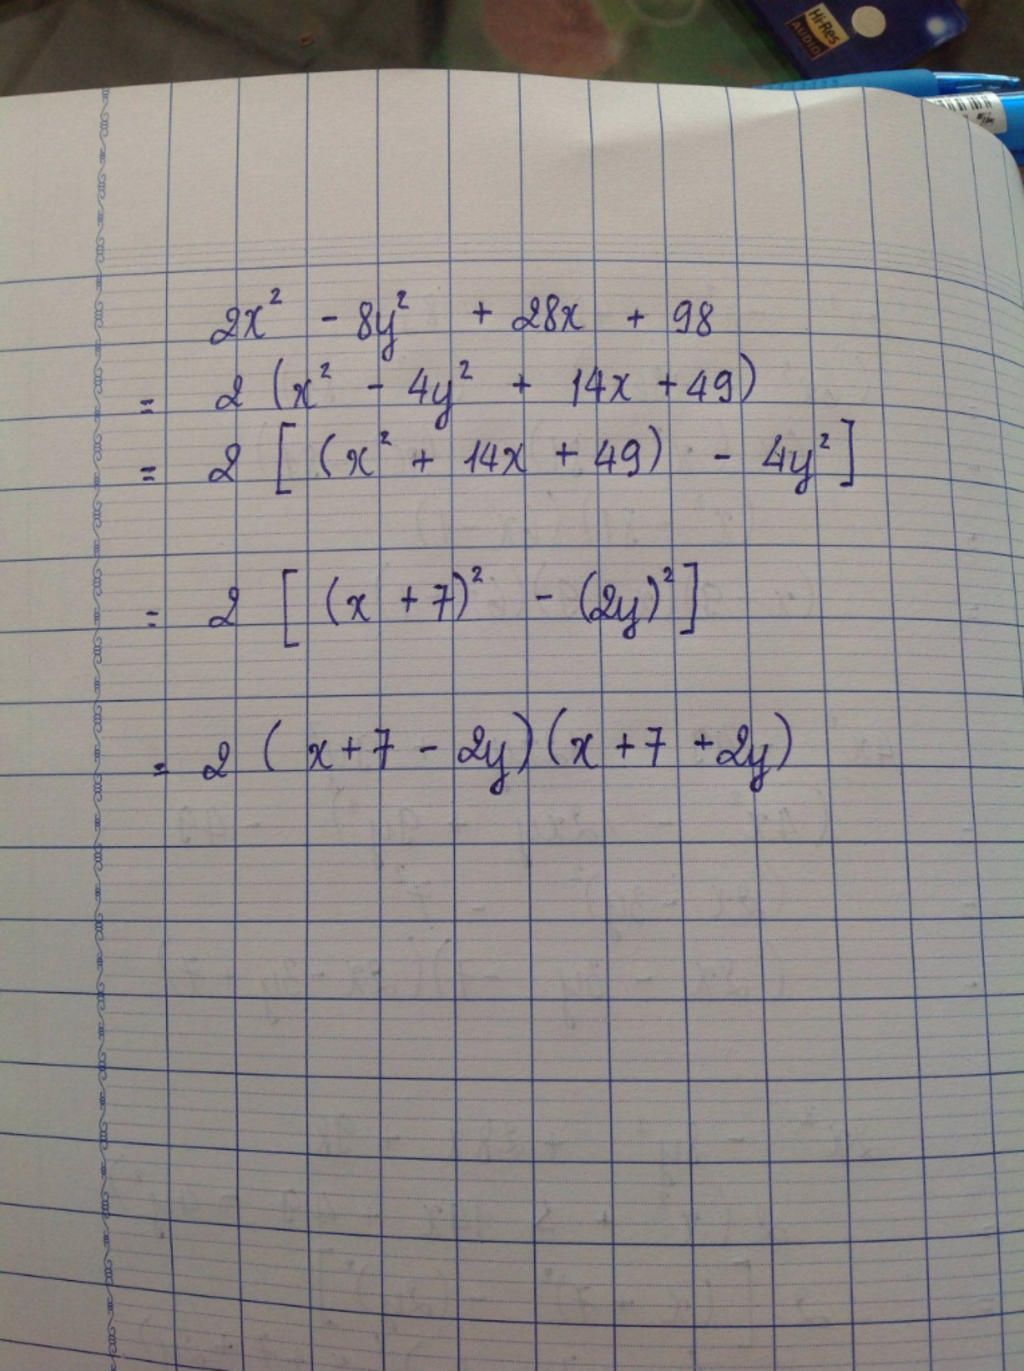 Hi-Res
AUDIO
2x² - 8y² + 28x + 98
= 2 (x² - 4y² + 14x + 49)
= 2 [(x² + 14x + 49) - 4y²]
= 2 [(x + 7)² - (2y)²]
= 2 (x + 7 - 2y)(x + 7 + 2y)